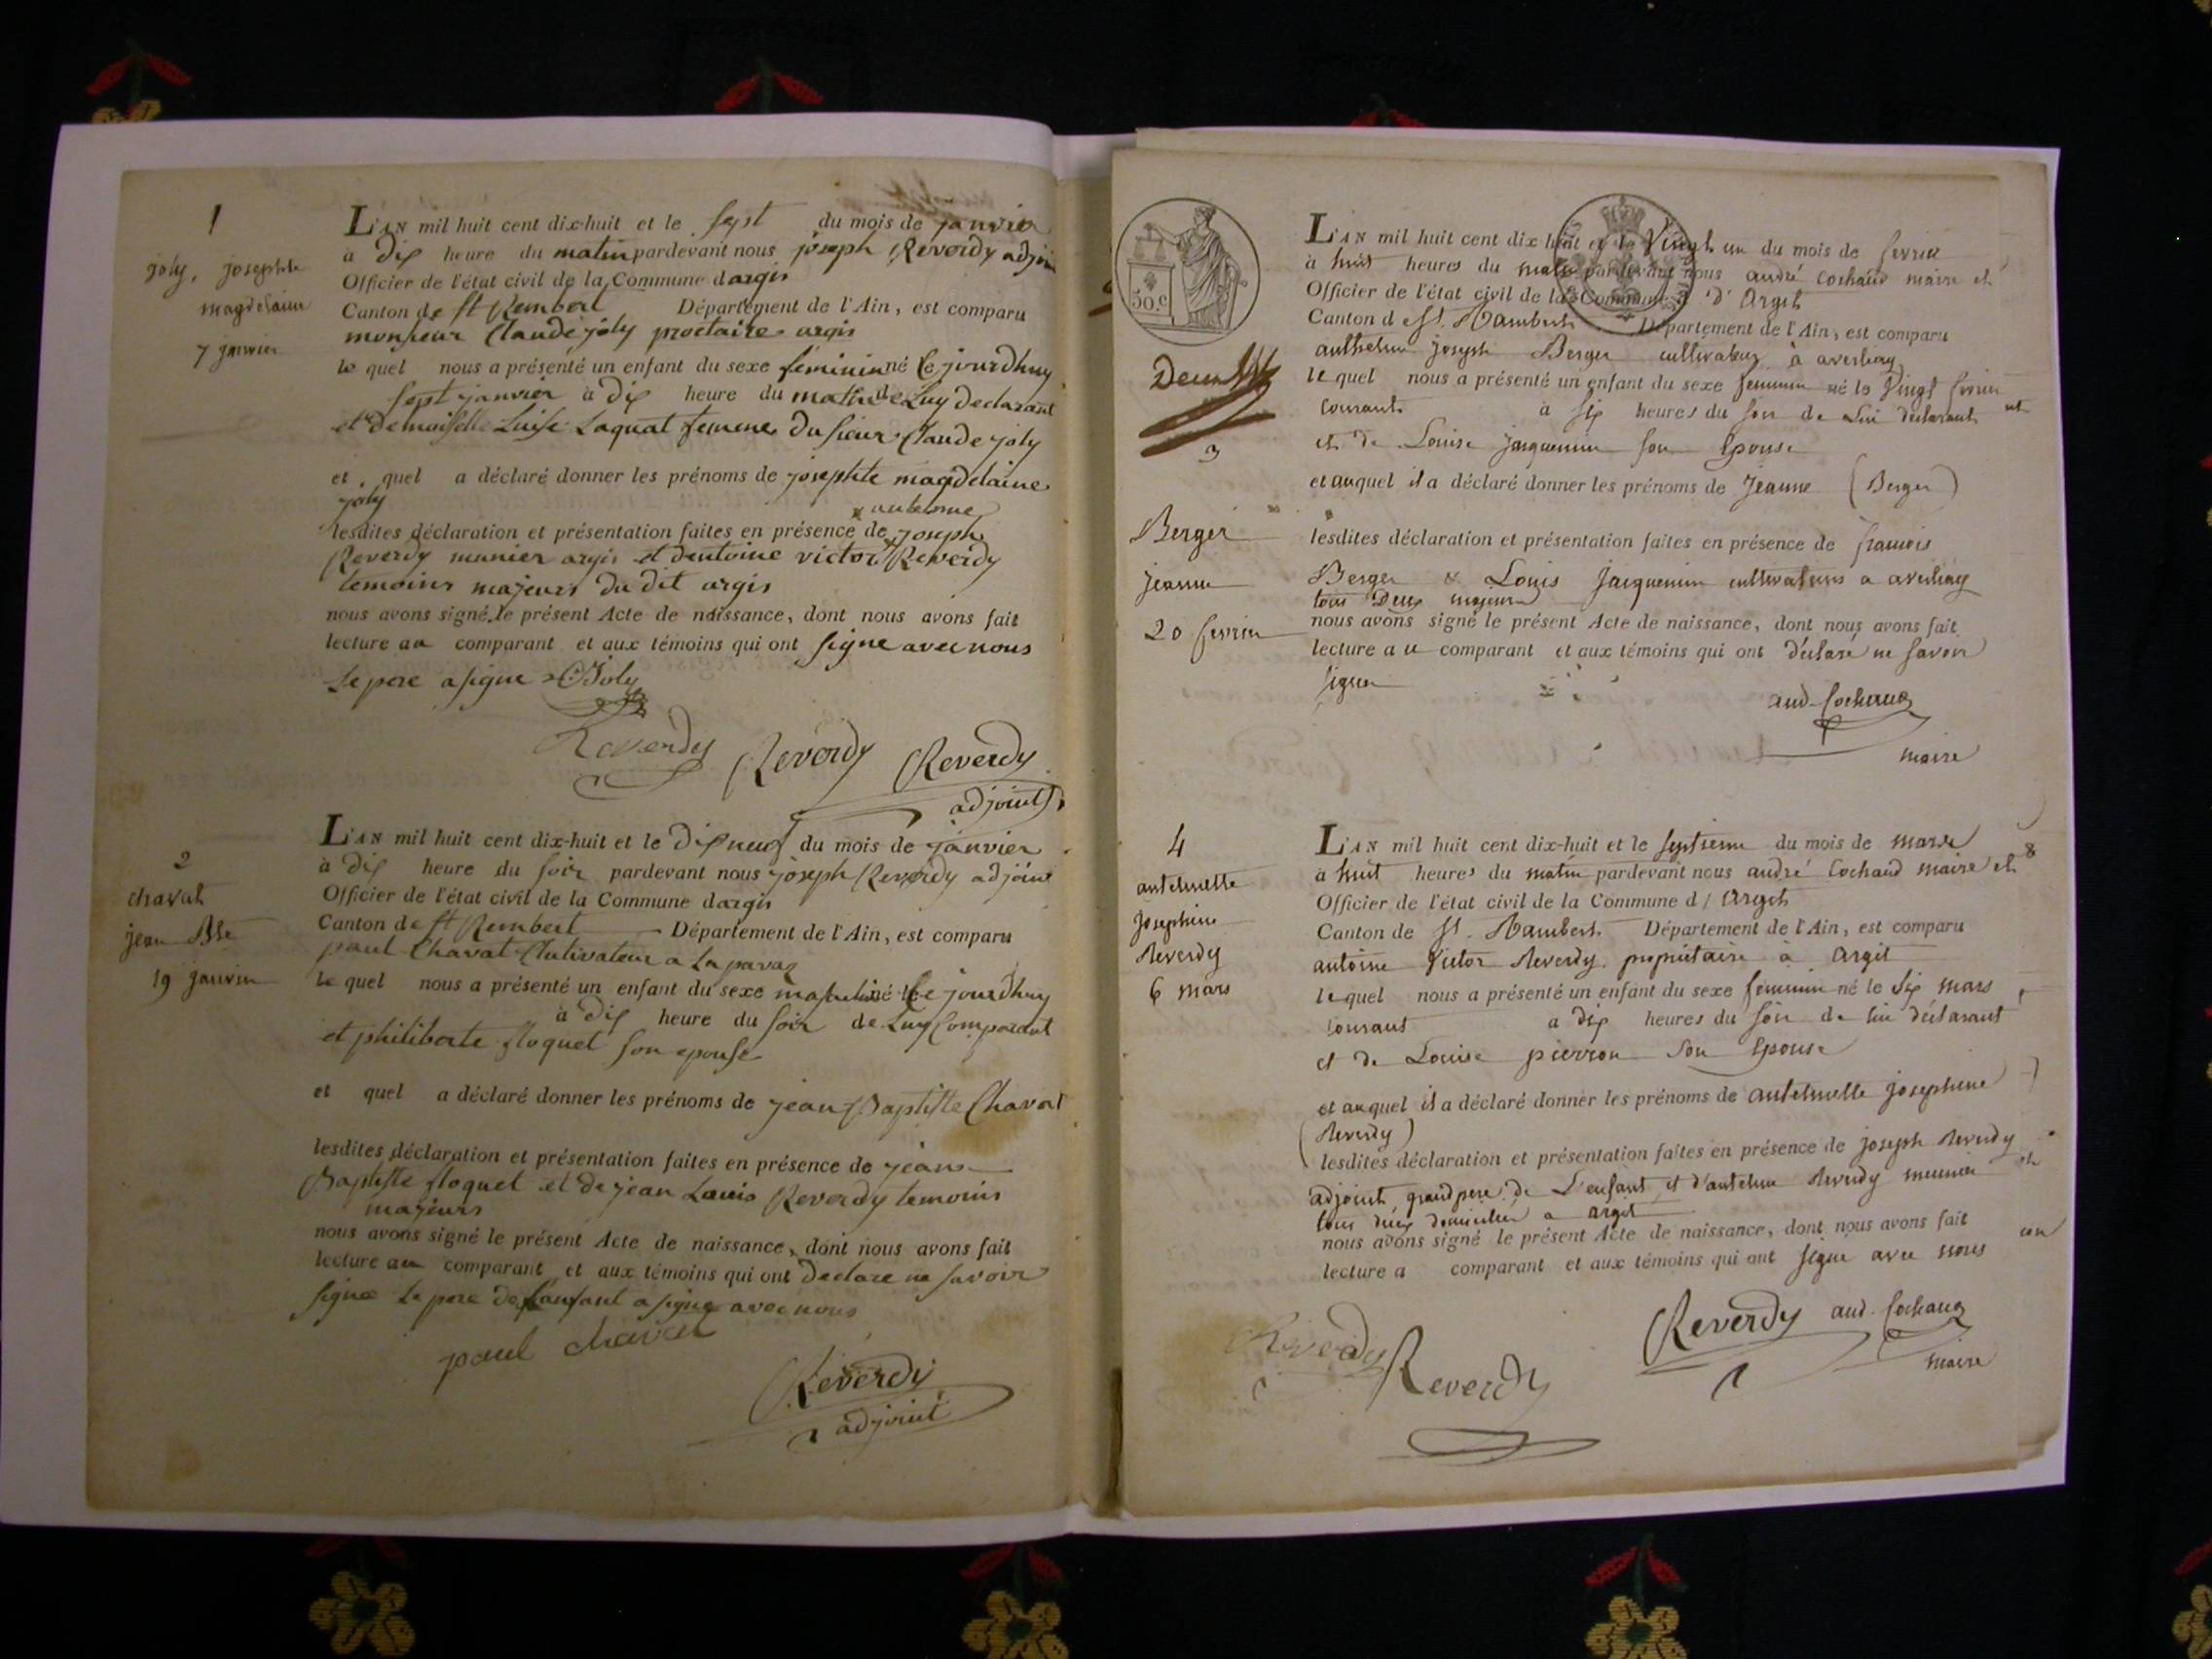 1
joly, josephte
magdelaine
7 janvier
L'AN mil huit cent dix-huit et le sept du mois de janvier
à dix heure du matin pardevant nous joseph Reverdy adjoin
Officier de l'état civil de la Commune dargis
Canton de st Rembert Département de l'Ain, est comparu
monsieur Claude joly proetaire argis
le quel nous a présenté un enfant du sexe feminin né Ce jourdhuy
sept janvier à dix heure du matin de Luy declarant
et demoiselle Luise Laquat femme du sieur Claude joly
et quel a déclaré donner les prénoms de josephte magdelaine
joly
x antelme
lesdites déclaration et présentation faites en présence de joseph
Reverdy munier argis et dentoine victor x Reverdy
temoins majeurs du dit argis
nous avons signé le présent Acte de naissance, dont nous avons fait
lecture au comparant et aux témoins qui ont signe avec nous
Le pere a signe Joly
Reverdy Reverdy Reverdy
adjoint
2
chavat
jean Bte
19 janvier
L'AN mil huit cent dix-huit et le dix neuf du mois de janvier
à dix heure du soir pardevant nous joseph Reverdy adjoin
Officier de l'état civil de la Commune dargis
Canton de st Rembert Département de l'Ain, est comparu
paul Chavat Clutivateur a La pavaz
le quel nous a présenté un enfant du sexe masculin né Ce jourdhuy
à dix heure du soir de Luy Comparant
et philiberte floquet son epouse
et quel a déclaré donner les prénoms de jean Baptiste Chavat
lesdites déclaration et présentation faites en présence de jean
Baptiste floquet et de jean Louis Reverdy temoins
majeurs
nous avons signé le présent Acte de naissance, dont nous avons fait
lecture au comparant et aux témoins qui ont Declare ne savoir
signe Le pere de Lanfant a signe avec nous
paul chavat
Reverdy
adjoint
50.c
3
Berger
jeanne
20 fevrier
L'AN mil huit cent dix huit et le Vingt un du mois de fevrier
à huit heures du matin pardevant nous andré Cochaud maire et
Officier de l'état civil de la Commune d' Argit
Canton d e St. Rambert Département de l'Ain, est comparu
anthelme joseph Berger cultivateur à averliaz
le quel nous a présenté un enfant du sexe feminin né le Vingt fevrier
Courant à six heures du soir de Lui declarant
et de Louise jacquemin son Epouse
et auquel il a déclaré donner les prénoms de Jeanne (Berger)
lesdites déclaration et présentation faites en présence de francois
Berger & Louis Jacquemin cultivateurs a averliaz
tous Deux majeurs
nous avons signé le présent Acte de naissance, dont nous avons fait
lecture a u comparant et aux témoins qui ont déclaré ne savoir
signer
and. Cochaud
maire
4
antelmette
josephine
Reverdy
6 mars
L'AN mil huit cent dix-huit et le septieme du mois de mars
à huit heures du matin pardevant nous andré Cochaud maire et
Officier de l'état civil de la Commune d' Argit
Canton de St. Rambert Département de l'Ain, est comparu
antoine Victor Reverdy propriétaire à Argit
lequel nous a présenté un enfant du sexe feminin né le Six mars
courant a dix heures du soir de lui déclarant
et de Louise pierron son Epouse
et auquel il a déclaré donner les prénoms de antelmette josephine
(Reverdy)
lesdites déclaration et présentation faites en présence de joseph Reverdy
adjoint grandpere de L'enfant et d'antelme Reverdy meunier
tous deux domiciliés a argit
nous avons signé le présent Acte de naissance, dont nous avons fait
lecture a comparant et aux témoins qui ont signé avec nous
Reverdy Reverdy Reverdy and. Cochaud
maire